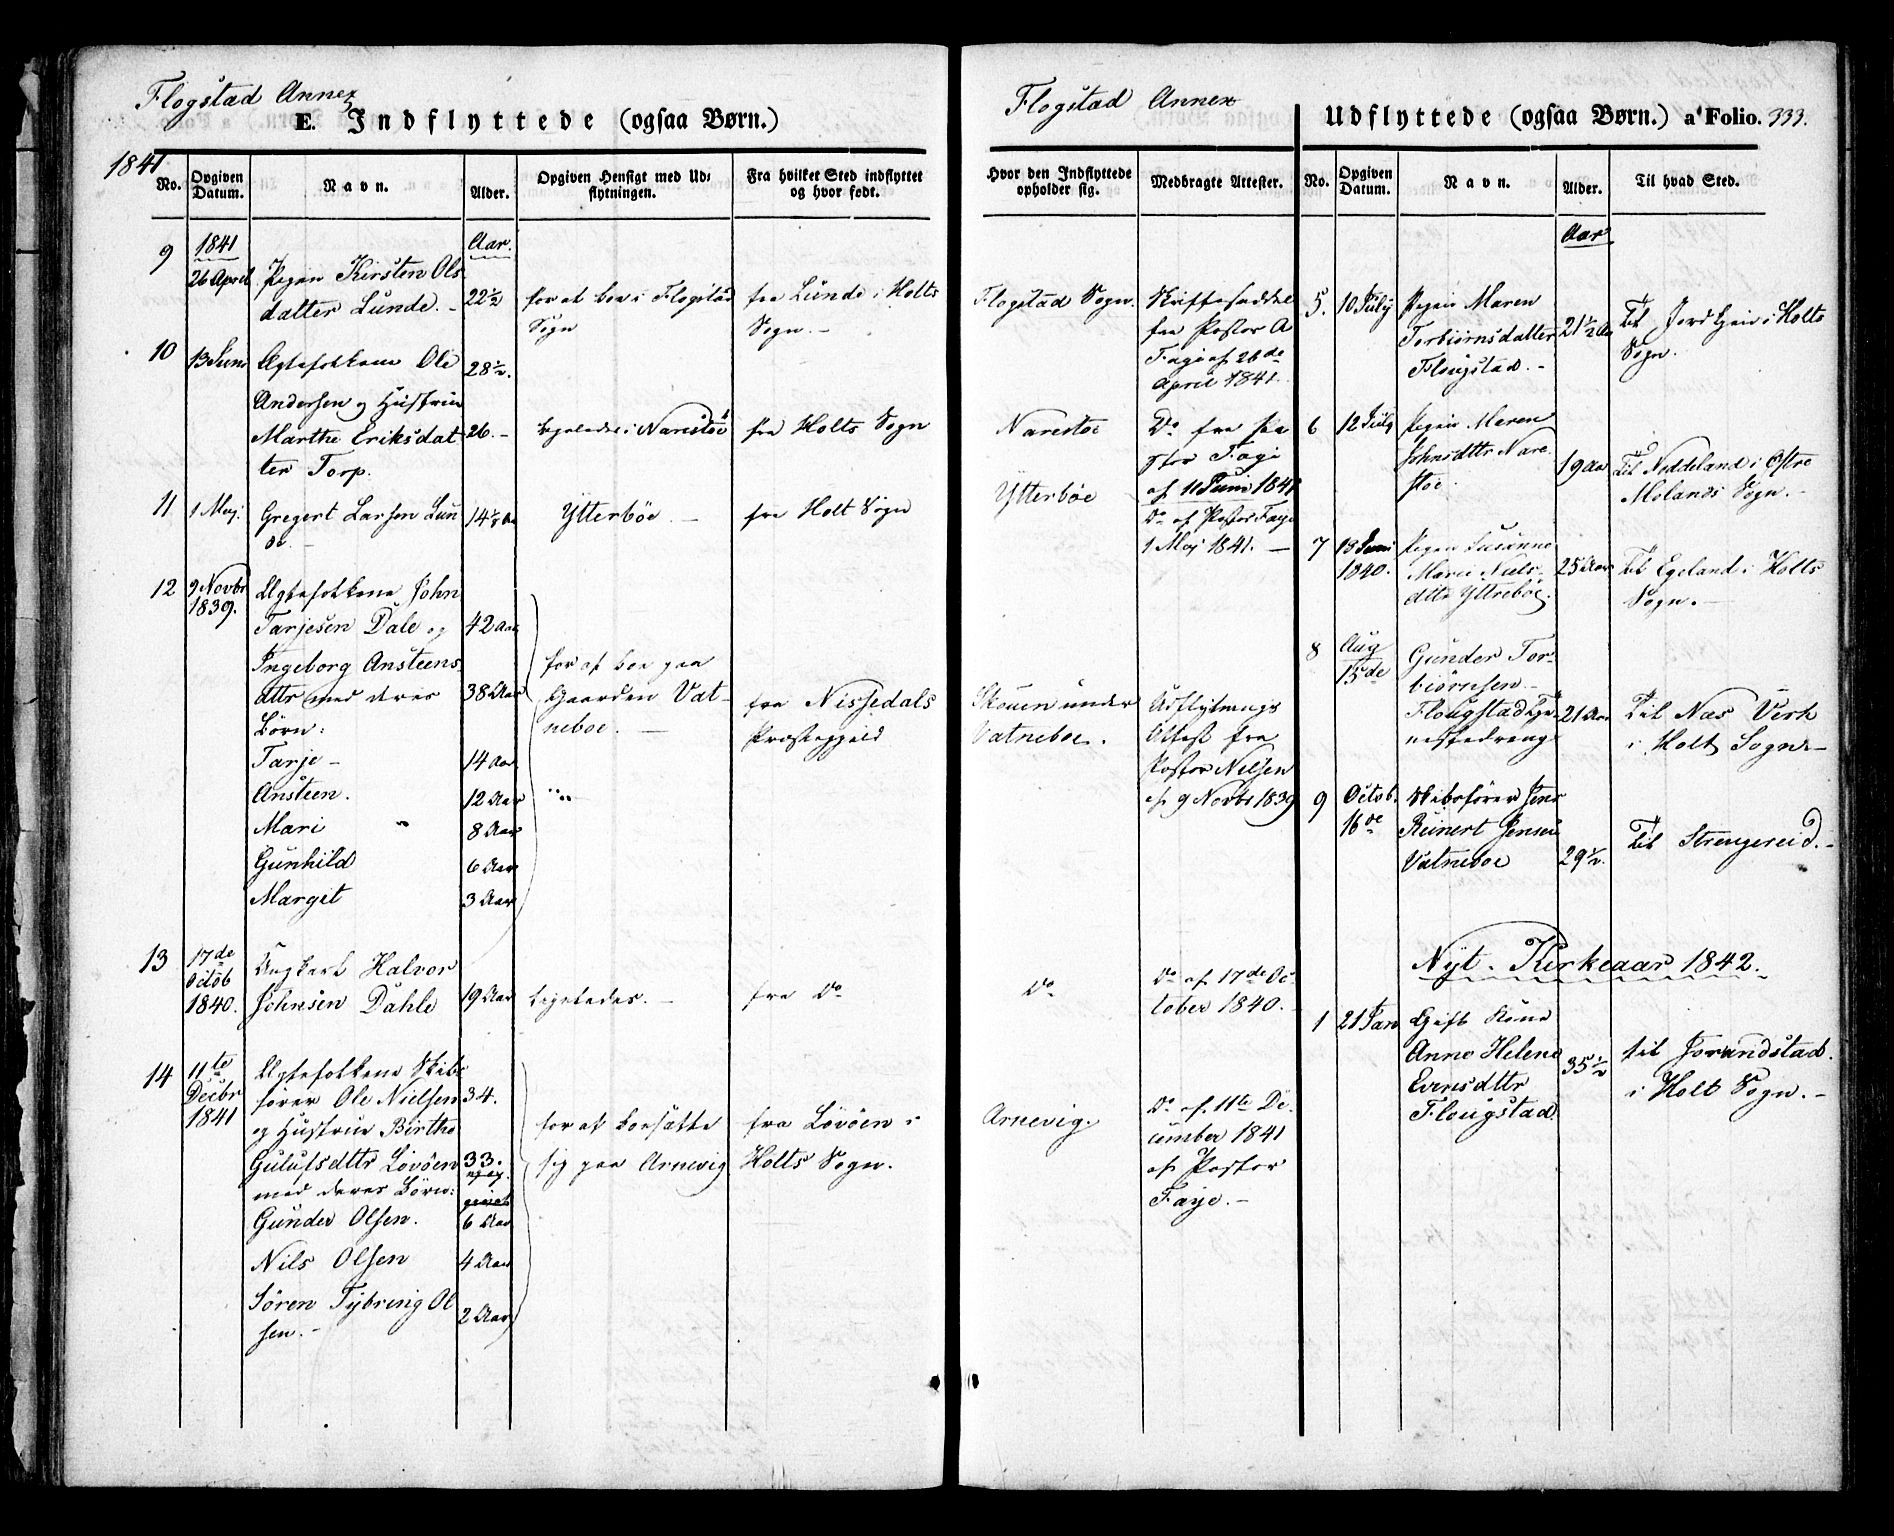 Flogstad Annex
E. Indflyttede (ogsaa Børn.)
1841
No.
Opgiven Datum.
Navn.
Alder.
Opgiven Hensigt med Ud-
flytningen.
Fra hvilket Sted indflyttet
og hvor født.
9
1841
26 April
Pigen Kirsten Ols
datter Lunde. -
Aar.
22½
for at boe i Flogstad
Sogn
fra Lunde i Holts
Sogn. -
10
13 Juni
Ægtefolkene Ole
Andersen og Hustrue
Marthe Eriksdat
ter Torp.
28½.
26. -
ligeledes i Narestöe
fra Holts Sogn
11
1 Maj
Gregert Larsen Lun
de. -
14½ Aar
Ytterböe. -
fra Holt Sogn
12
9 Novbr
1839.
Ægtefolkene John
Tarjesen Dale og
Ingeborg Ansteens
dttr med deres
Börn:
Tarje -
Ansteen.
Mari
Gunhild
Margit
42 Aar
38 Aar
14 Aar
12 Aar
8 Aar
6 Aar
3 Aar
for at boe paa
Gaarden Vat-
neboe. -
fra Nissedals
Præstegjeld
13
17de
Octob
1840.
Ungkarl Halvor
Johnsen Dahle
19 Aar
ligeledes. -
fra Do
14
11te
Decbr
1841
Ægtefolkene Skibs
förer Ole Nielsen
og Hustrue Birthe
Gulufsdttr Lövöen
med deres Börn:
Gunder Olsen.
Nils Olsen
Sören Tybring Ol
sen. -
34.
33.
6 Aar
4 Aar
2 Aar
for at bosætte
sig paa Arnevig
fra Lövöen i
Holts Sogn.
Flogstad Annex
Hvor den Indflyttede
opholder sig.
Medbragte Attester.
Flogstad Sogn.
Skrifteseddel
fra Pastor A
Faye af 26de
April 1841.
Narestöe
Do fra Pa
stor Faye
af 11 Juni 1841
Ytterböe
Do af Pastor Faye
1 Maj 1841. -
Skouen under
Vatneboe.
Udflytnings
Attest fra
Pastor Nielsen
af 9 Novbr 1839
Do
Do af 17de Oc-
tober 1840.
Arnevig.
Do af 11te De-
cember 1841
af Pastor
Faye. -
Udflyttede (ogsaa Børn.) a' Folio. 333.
No.
Opgiven Datum.
Navn.
Alder.
Til hvad Sted.
Aar
5.
10 July
Pigen Maren
Torbiörnsdatter
Flougstad. -
21½ Aar
Til Jordkjen i Holts
Sogn.
6
12 July
Pigen Maren
Johnsdttr Nare
stöe
19 Aar
Til Neddeland i Östre
Molands Sogn. -
7
13 Juni
1840.
Pigen Susanne
Marie Niels-
dttr Yttreböe.
25 Aar
Til Egeland i Holts
Sogn. -
8
Aug
15de
Gunder Tor-
biörnsen
Flougstad Tje-
nestedreng
21 Aar
Til Næs Verk
i Holt Sogn -
9
Octob.
16de
Skibsförer Jens
Reinert Jensen
Vatneboe
29½.
Til Strengereid. -
Nyt Kirkeaar 1842.
1
21 Jan
Gift Kone
Anne Helene
Evensdttr
Flougstad
35½
til Jorandstad
i Holt Sogn. -